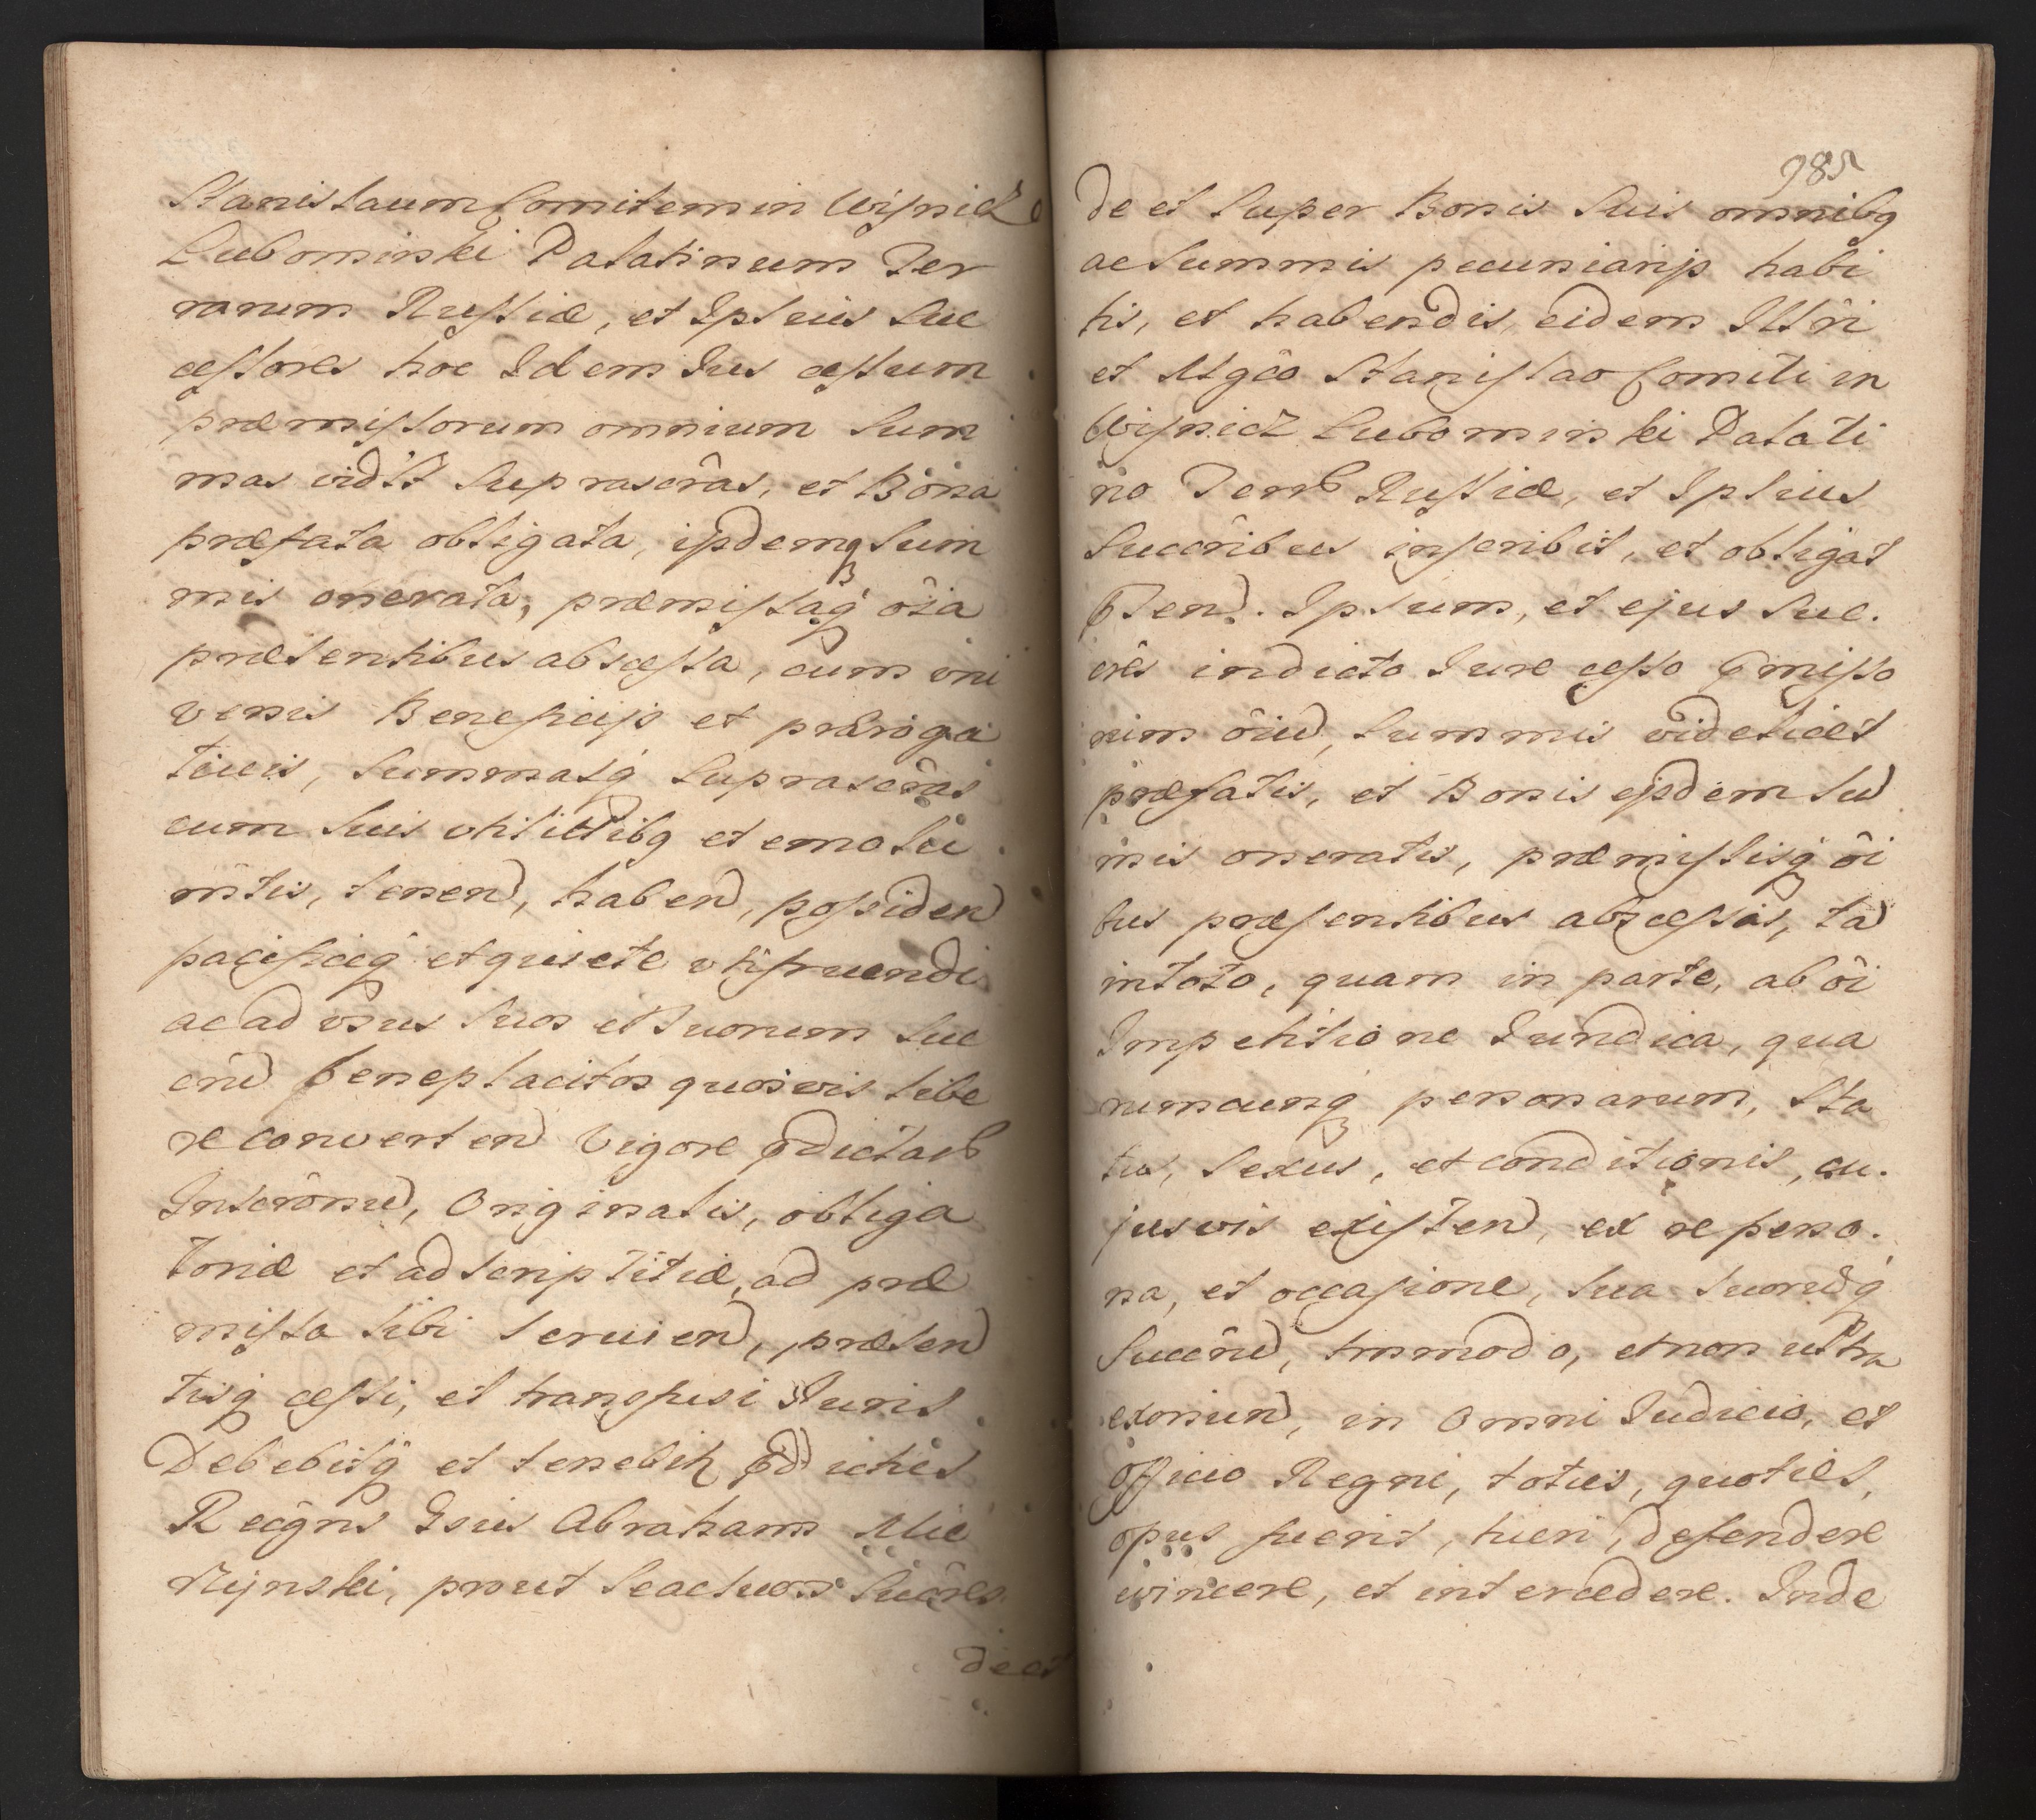 Stanislaum Comitem in Wisnicz
Lubomirski Palatinum Ter
rarum Russiæ, et Ipsius Suc
cessores hoc Idem Ius cessum
præmissorum omnium Sum
mas vidlt Suprascrâs, et Bona
præfata obligata, ijsdemq Sum
mis onerata, præmissaq oîa
præsentibus abscessa, cum vni
versis Beneficijs et præroga
tiuis, Summasq Suprascrâs
cum Suis vtilittibq et emolu
mtis, tenend, habend, possidend
pacificeq et quiete vtifruendi
ac ad vsus Suos et Suorum Suc
crũ beneplacitos quosvis libe
re convertend Vigore pdictarũ
Inscrônũ, Originalis, obliga
toriæ et adscriptitiæ, ad præ
missa Sibi Seruiend, præsen
tisq cessi, et transfusi Iuris
Debebitq et tenebitr pdictus
Recôgns Gsus Abraham Mie
rzynski, prout Se ac Suos Sucôres
de et
985
de et Super Bonis Suis omnibq
ac Summis pecuniarijs habi
tis, et habendis, eidem Illri
et Mgco Stanislao Comiti in
Wisnicz Lubomirski Palati
no Terrũ Russiæ, et Ipsius
Succrîbus inscribit, et obligat
psend. Ipsum, et ejus Suc.
cres in dicto Iure cesso pmisso
rum oîũ, Summis videlicet
præfatis, et Bonis ijsdem Sũ
mis oneratis, præmissisq oî
bus præsentibus abscessis, tã
in toto, quam in parte, ab oî
Impetitione Iuridica, qua
rumcunq personarum, Sta
tus, Sexus, et conditionis, cu.
jusvis existend, ex re perso.
na, et occasione, Sua Suorũq
Succrũ, tmmodo, et non ultra
exoriund, in Omni Iudicio, et
Officio Regni, toties, quoties,
opus fuerit, tueri, defendere
evincere, et intercedere. Inde